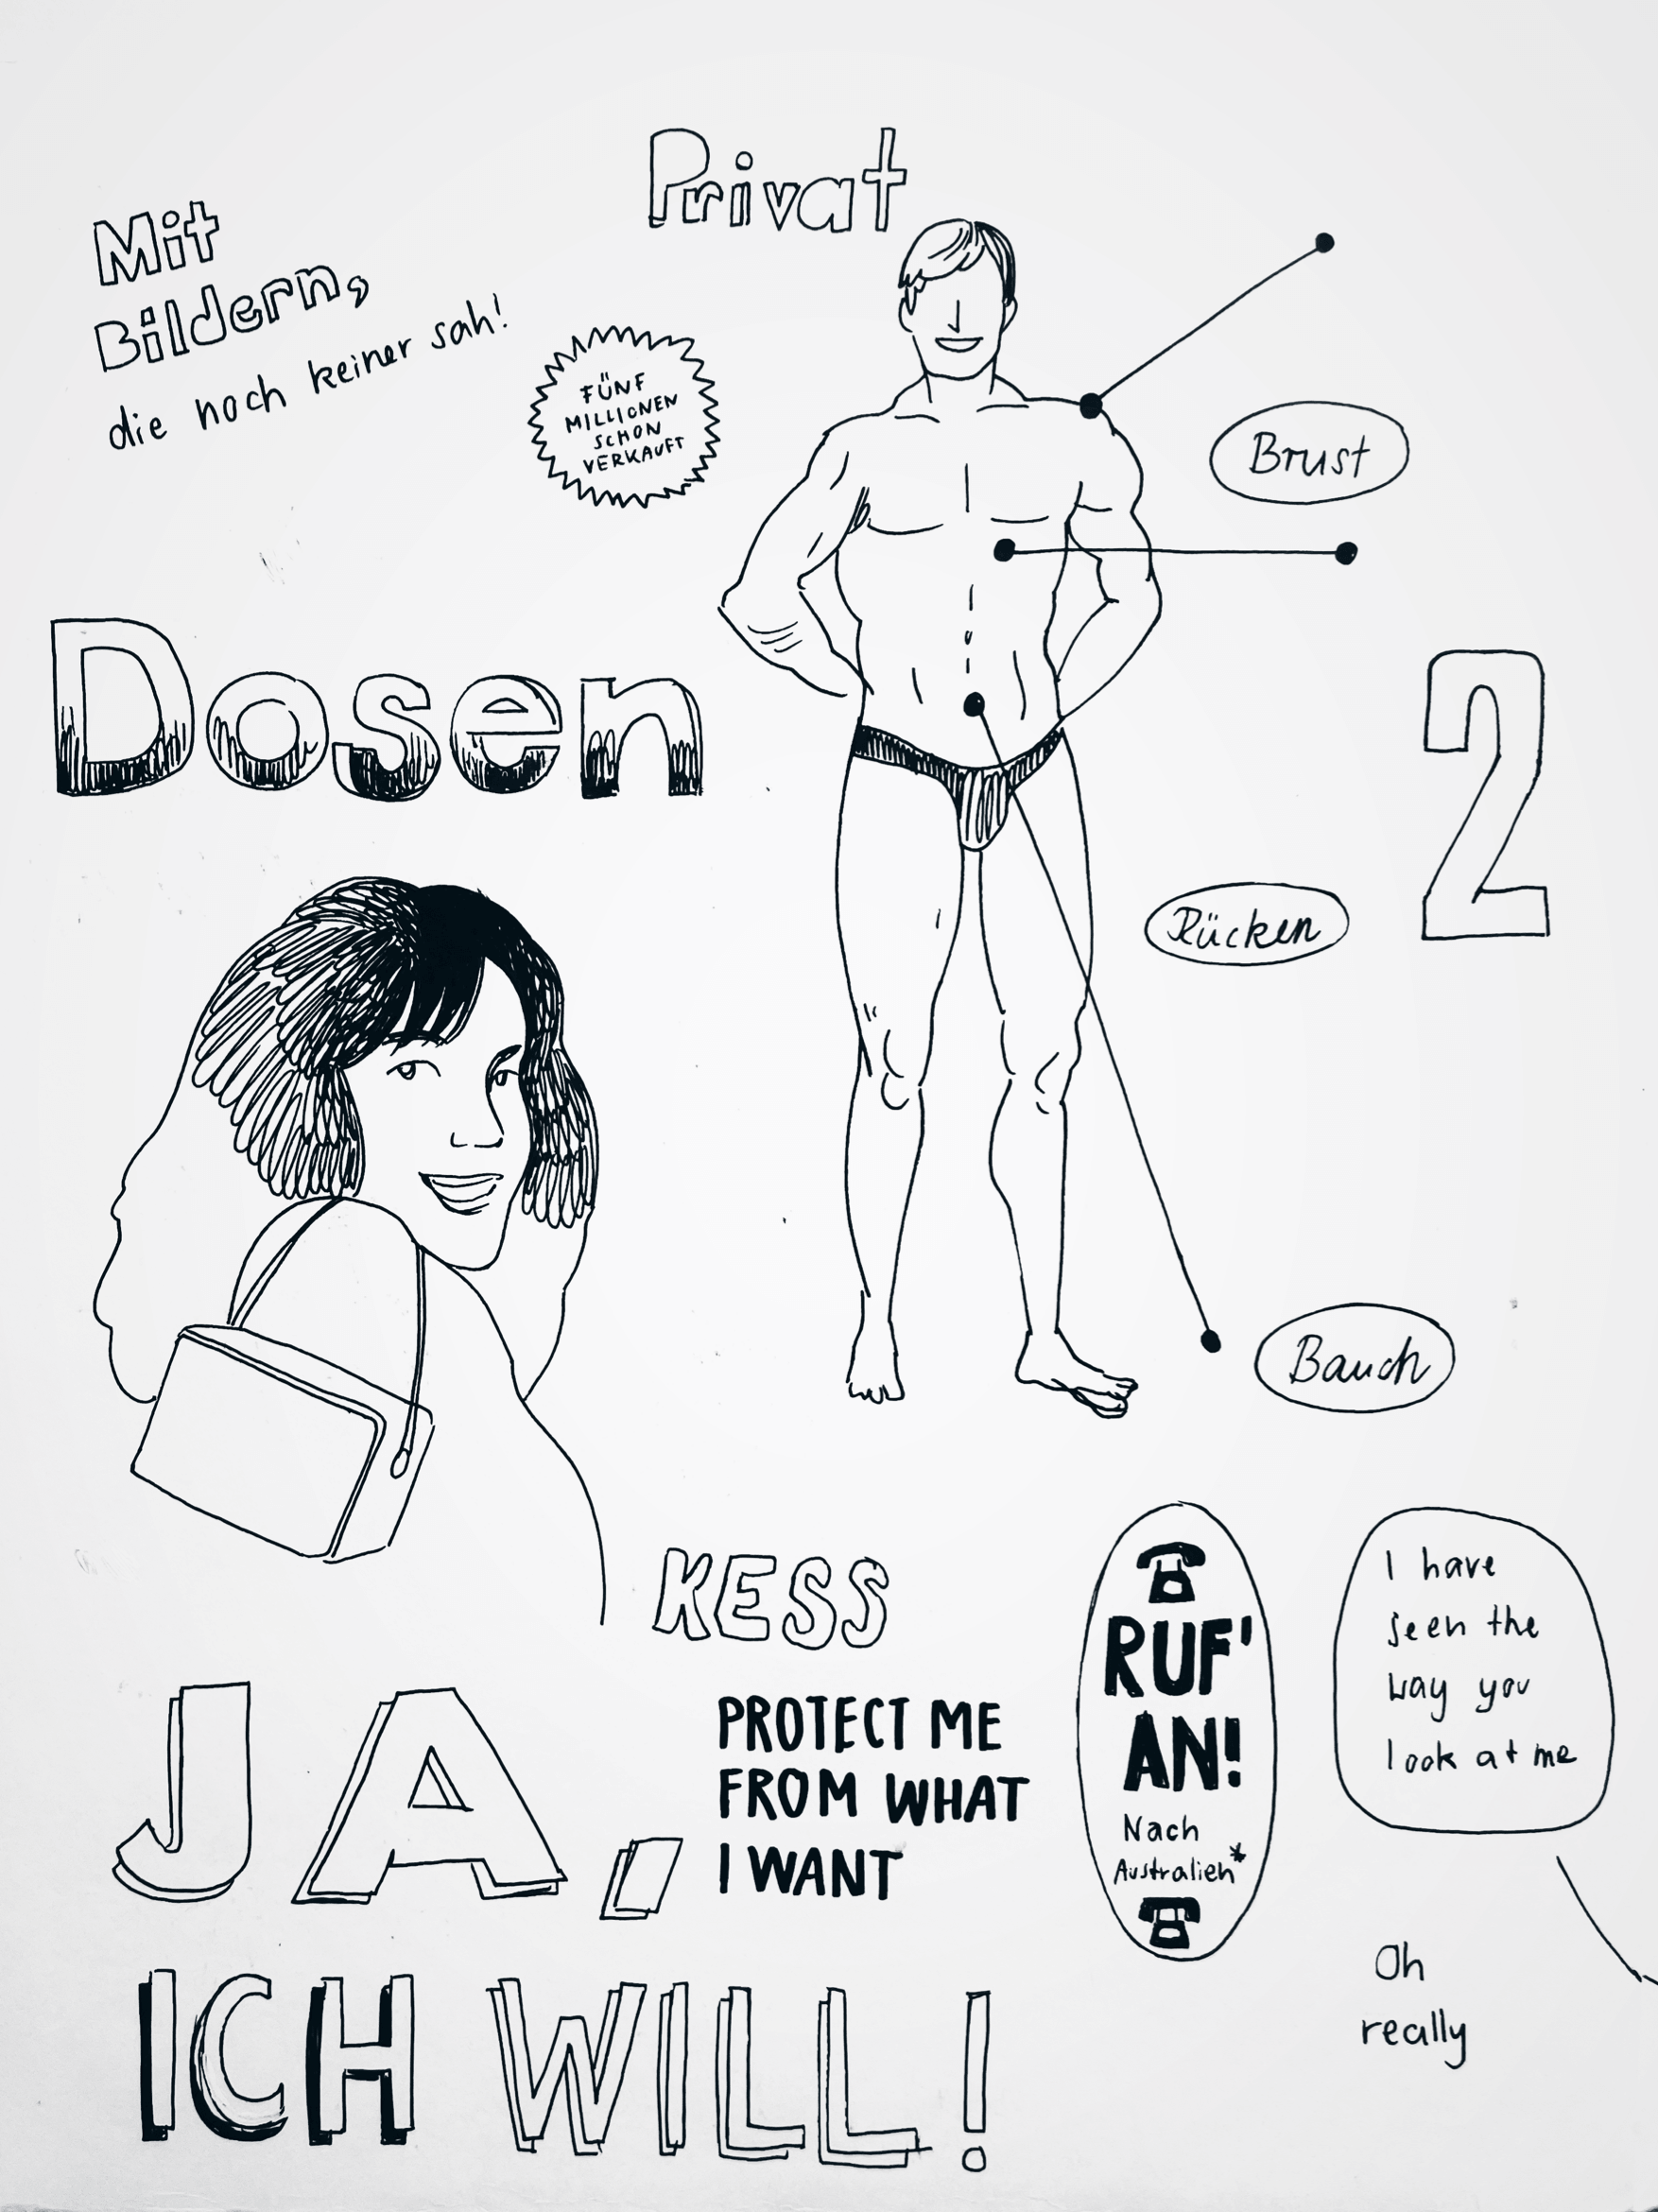 Privat
Mit
Bildern,
die noch keiner sah!
FÜNF
MILLIONEN
SCHON
VERKAUFT
Brust
Dosen
2
Rücken
Bauch
KESS
JA,
PROTECT ME
FROM WHAT
I WANT
ICH WILL!
RUF'
AN!
Nach
Australien*
I have
seen the
way you
look at me
Oh
really